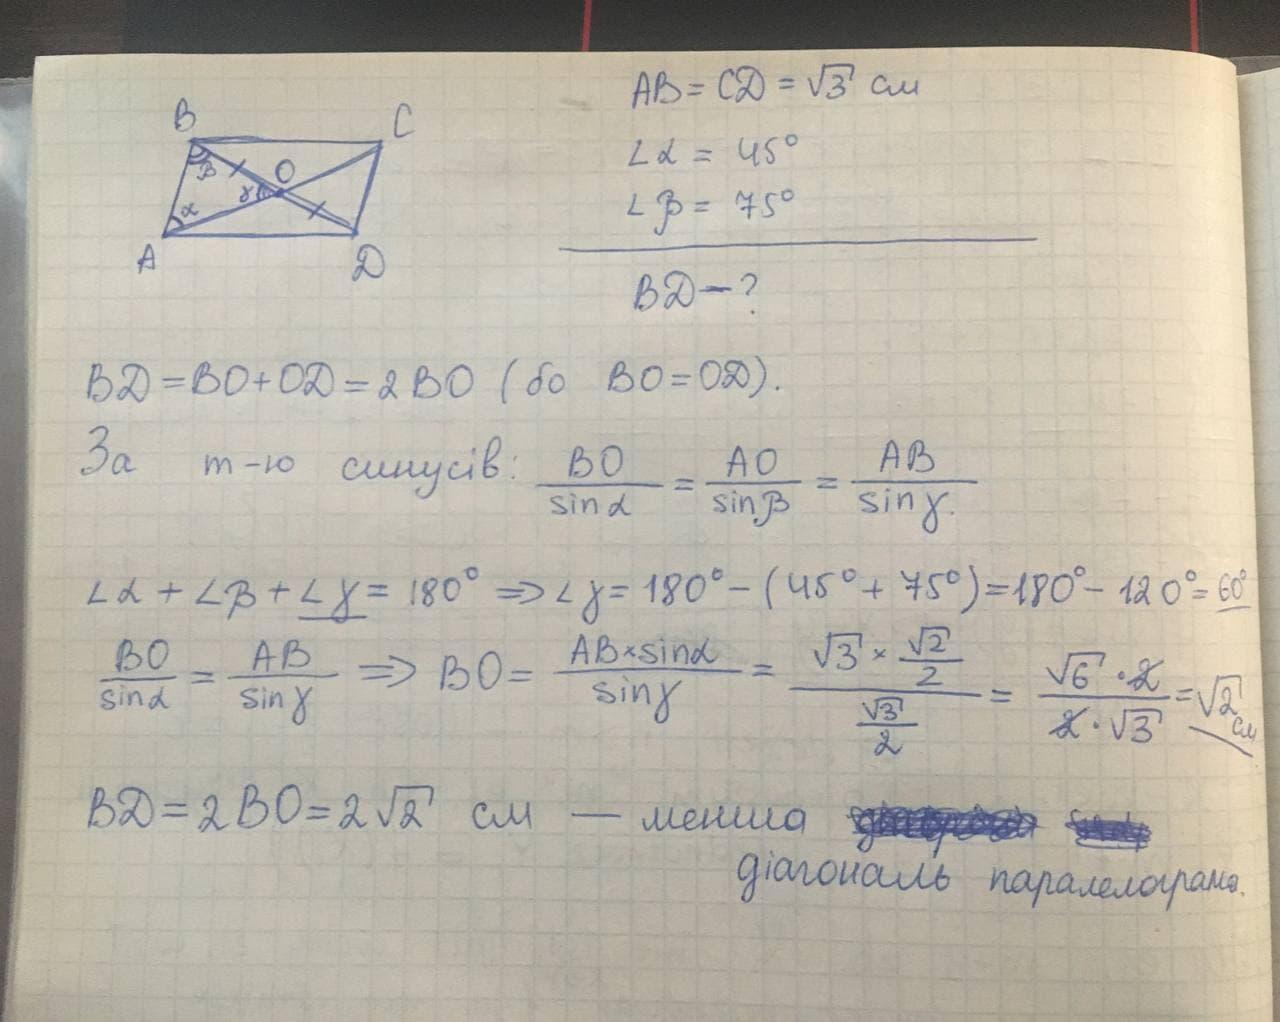 B C
β O
γ
α
A D
AB = CD = √3 см
∠α = 45°
∠β = 75°
BD – ?
BD = BO + OD = 2BO (бо BO = OD).
За т-ю синусів: BO/sinα = AO/sinβ = AB/sinγ.
∠α + ∠β + ∠γ = 180° ⇒ ∠γ = 180° – (45° + 75°) = 180° – 120° = 60°
BO/sinα = AB/sinγ ⇒ BO = AB×sinα/sinγ = (√3 × √2/2)/(√3/2) = √6 · 2/2 · √3 = √2 см
BD = 2BO = 2√2 см — менша
діагональ паралелограма.